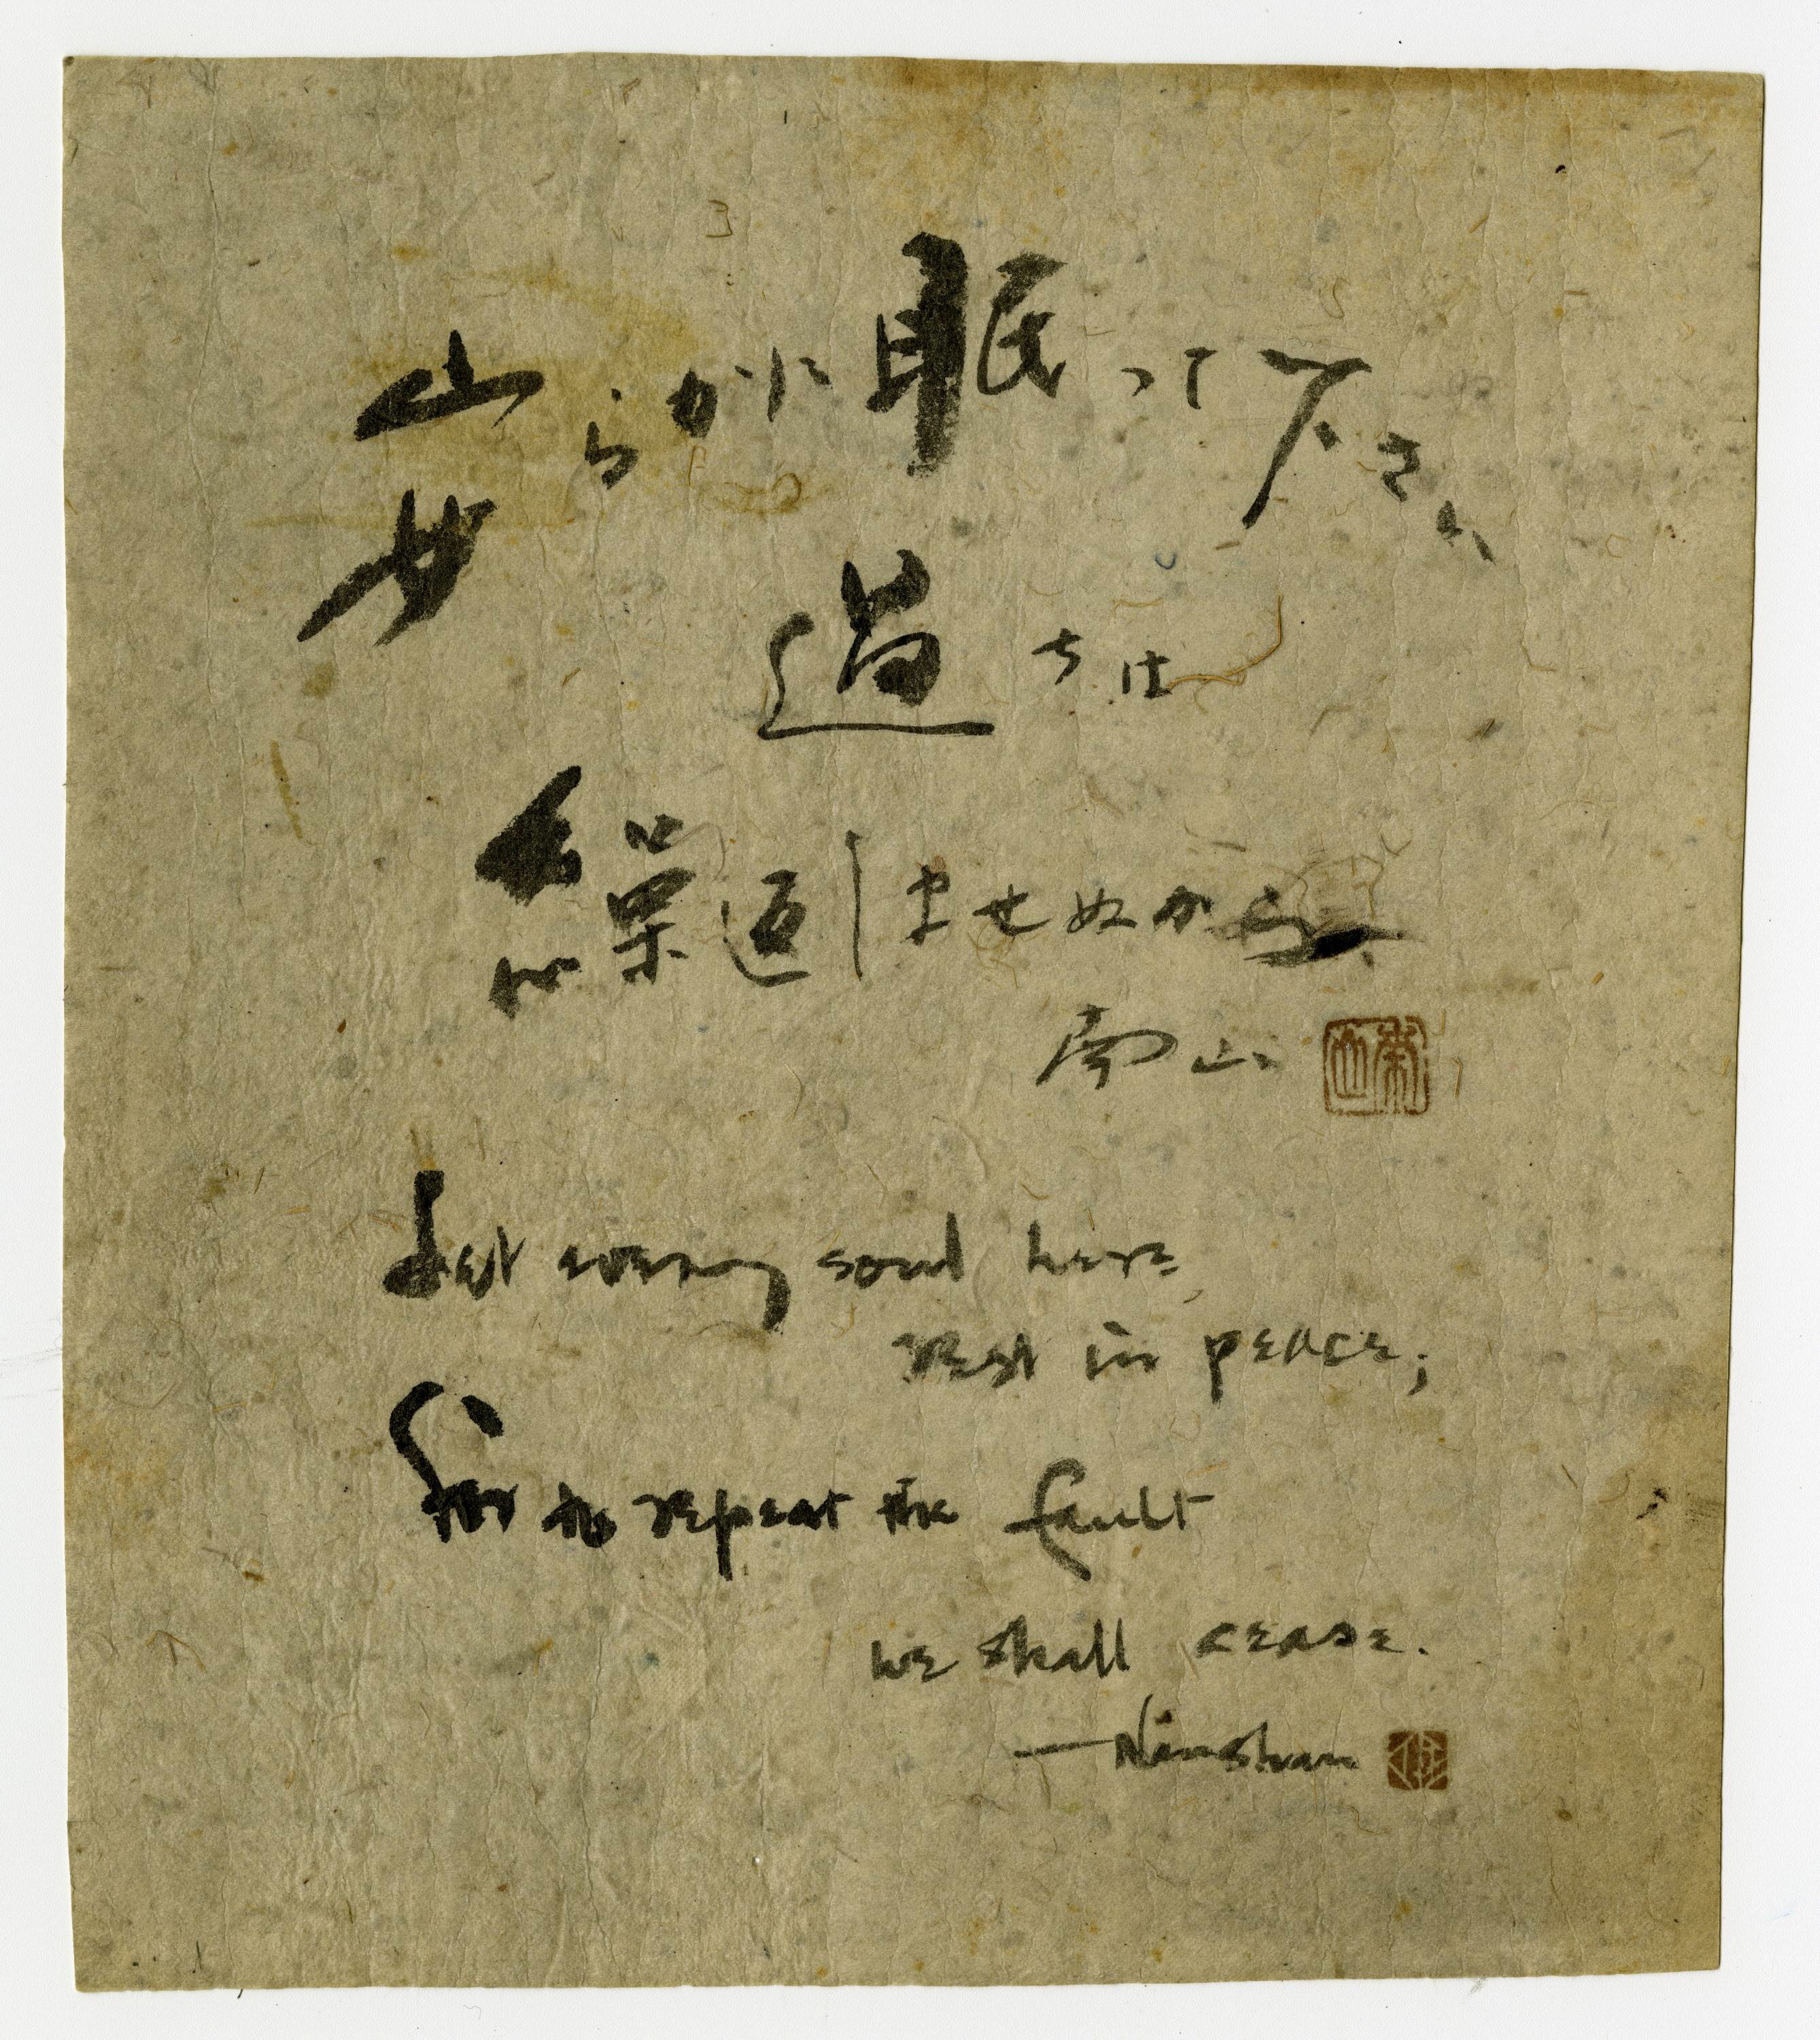 安らかに眠って下さい
過ちは
繰返しませぬから
南山
Let every soul here
rest in peace;
For to repeat the fault
we shall cease.
—Nanshan